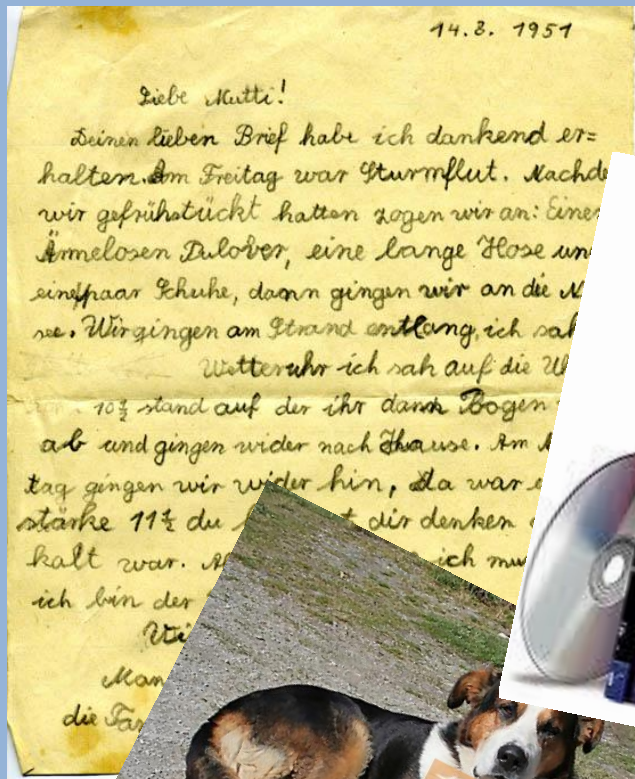 14.3. 1951
Liebe Mutti!
Deinen lieben Brief habe ich dankend er=
halten. Am Freitag war Sturmflut. Nachde
wir gefrühstückt hatten zogen wir an: Einen
Ärmelosen Pulover, eine lange Hose un
ein paar Schuhe, dann gingen wir an die N
see. Wir gingen am Strand entlang, ich sah
Wetteruhr ich sah auf die U
10½ stand auf der ihr dann Bogen
ab und gingen wider nach Hause. Am
tag gingen wir wider hin, da war
stärke 11½ du dir denken
kalt war. ich mu
ich bin der
Man
die